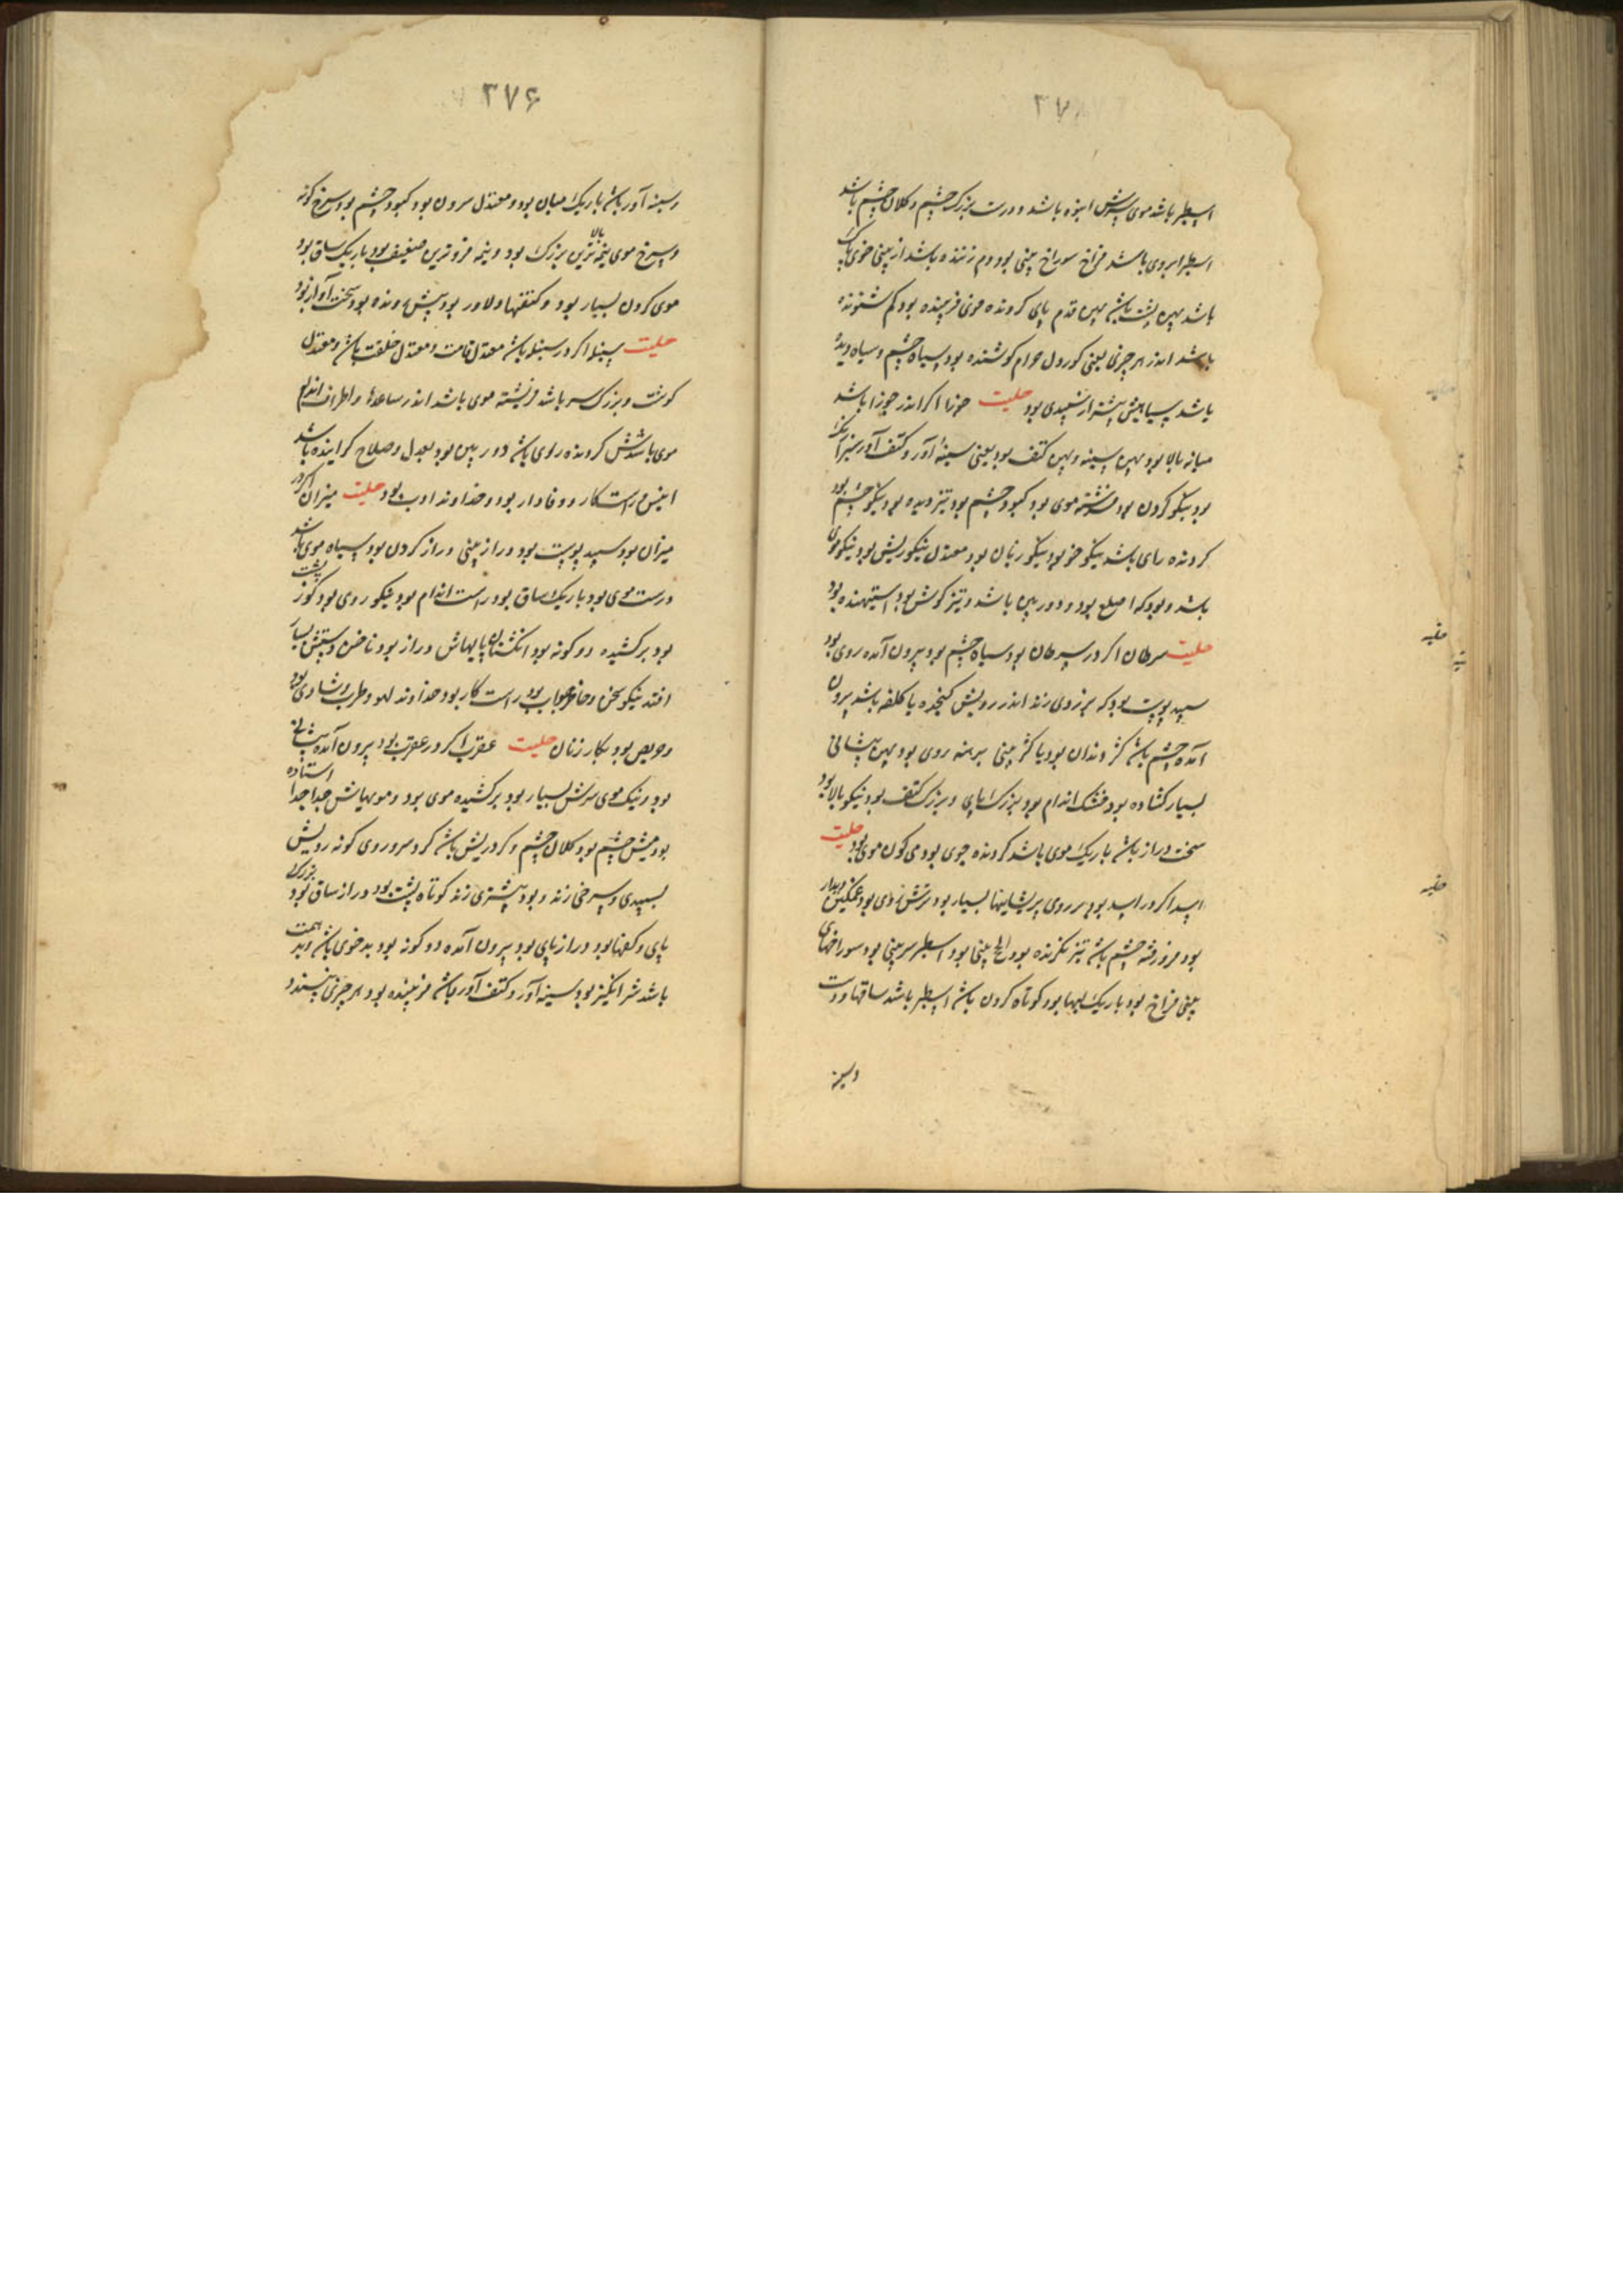 اسطبر باشد موی سرش انبوه باشد و درست بزرگ چشم و کلان چشم باشد
اسطبر ابروی باشد فراخ سوراخ بینی بود دم زننده باشد از بینی خوی
باشد پهن پشت باشد پهن قدم پای کرونده موی فریبنده بود کم شنونده
باشد اندر هر چیزی یعنی کوردل حرام کوشنده بود سیاه چشم و سیاه دیده
باشد سیاهیش بیشتر از سپیدی بود حلیت جوزا اکر اندر جوزا باشد
میانه بالا بود پهن سینه و پهن کتف بود یعنی سینه آور و کتف آور
بود نیکو کردن بود فرشته موی بود کبود چشم بود تیز دیده بود نیکو چشم بود
کرونده رای باشد نیکو خو بود نیکو زبان بود معتدل نیکو ریش بود نیکو موی
باشد و بود که اصلع بود و دوربین باشد و تیز کوش بود ستیهنده بود
حلیت سرطان اکر در سرطان بود سیاه چشم بود بیرون آمده روی بود
سپید پوست بود که بر روی زند اندر رویش کنجده یا کلفه باشد بیرون
آمده چشم باشد کژ دندان بود یا کژ بینی برهنه روی بود پهن پیشانی
بسیار کشاده بود خشک اندام بود بزرک پای و بزرک کتف بود نیکو بالا بود
سخت دراز باشد باریک موی باشد کرونده جوی بود می کون موی بود حلیت
اسد اکر در اسد بود بر روی پریشانیها بسیار بود ترش روی بود غمکین دیدار
بود فرو رفته چشم باشد تیز نکرنده بود بینی بود اسطبر سر بینی بود سوراخهای
بینی فراخ بود باریک لبها بود کوتاه کردن باشد اسطبر باشد ساقها و دست
وسینه
حلیه
حلیه
۳۷۶
وسینه آور باشد باریک میان بود و معتدل سرون بود کبود چشم بود سرخ کونه
و سرخ موی نیمه بالاترین بزرک بود و نیمه فروترین ضعیف بود باریک ساق بود
موی کردن بسیار بود و کتفها دلاور بود پیش رونده بود سخت آواز بود
حلیت سنبله اکر در سنبله باشد معتدل قامت و معتدل خلقت باشد و معتدل
کوشت و بزرک سر باشد فرشته موی باشد اندر ساعدها و اطراف اندام
موی باشدش کرونده روی باشد دوربین بود بعدل و صلاح کراینده باشد
انیس و راستکار و وفادار بود و خداوند ادب بود حلیت میزان اکر در
میزان بود سپید پوست بود دراز بینی دراز کردن بود سیاه موی باشد
درست موی بود باریک ساق بود راست اندام بود نیکو روی بود کوز پشت
بود برکشیده دو کونه بود انکشتهای پایهاش دراز بود ناخن دستش بسیار
افتد نیکو سخن و حاضر جواب بود راست کار بود خداوند لهو و طرب و شادی بود
و حریص بود بکار زنان حلیت عقرب اکر در عقرب بود بیرون آمده پیشانی
بود و نیک موی سرش بسیار بود برکشیده موی بود و مویهایش جدا جدا استاده
بود میش چشم بود کلان چشم و کرد ریش باشد کرد سر و روی کونه رویش
بسپیدی و سرخی زند و بود بیشتری زند کوتاه پشت بود دراز ساق بود بزرک
پای و کفها بود دراز پای بود بیرون آمده دو کونه بود بدخوی باشد و بد همت
باشد شر انکیز بود سینه آور و کتف آور باشد فریبنده بود هر چیزی پسندد